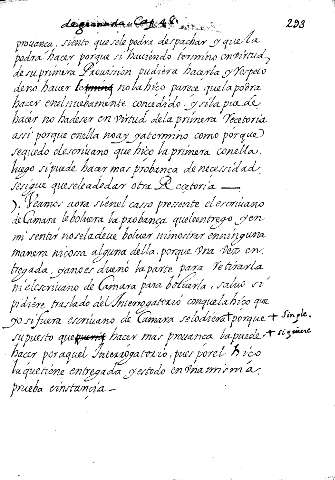 de granada. Cap. 46. 293
provança, siento que se le podra despachar y que la
podra hacer porque si haviendo termino en virtud
de su primera Provision pudiera hacerla, y respeto
de no haver no la hiço parece que la podra
hacer
hacer no ha de ser en virtud de la primera Recetoria
assi porque en ella no ay ya termino como porque
el escrivano que hiço la primera con ella,
luego si puede hacer mas probança de necessidad
se sigue que se le a de dar otra Recetoria
Veamos aora si en el casso presente el escrivano
de Camara le bolvera la probança que le entregò, y en
mi sentir no se la deve bolver ni mostrar en ninguna
manera ni cossa alguna della. porque una vez en-
tregada, ya no es dueño la parte para retirarla
ni el escrivano de Camara para bolverla, salvo si
pidiere traslado del Interrogatorio con que la hiço que
yo si fuera escrivano de Camara se lo diera + porque + simple.
supuesto que hacer mas provança la puede + si quiere
hacer por aquel Interrogatorio, pues por el hiço
la que tiene entregada y estado en una misma
prueba e instancia